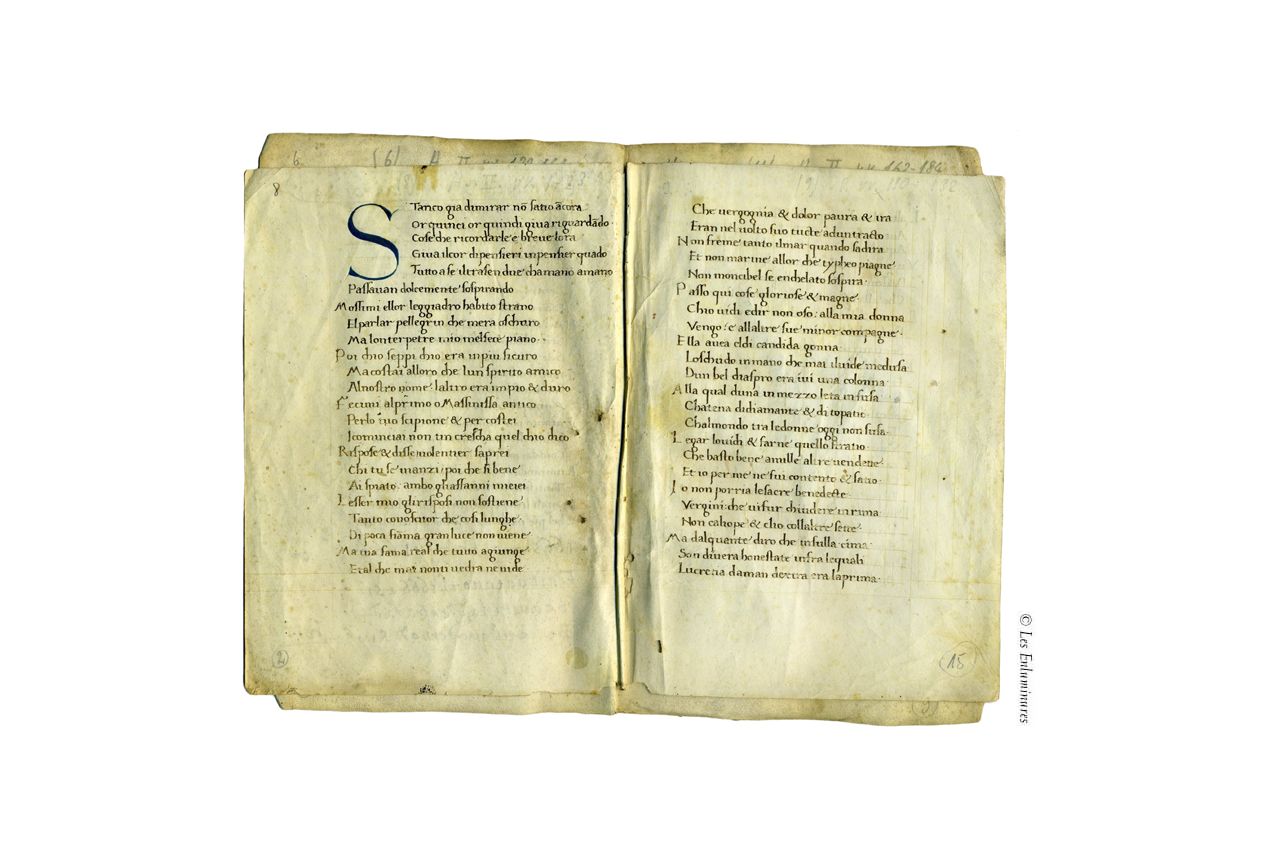 6 (6) A II
142-184
8
STanco gia dimirar nō satio ācora
Or quinci or quindi giua riguardādo
Cose che ricordarle e breue lora
Giua ilcor dipensieri inpensier quādo
Tutto a se iltrasen due cha mano a mano
Passauan dolcemente sospirando
Mossimi ellor leggiadro habito strano
Elparlar pellegrin che mera oschuro
Ma lonterpetre mio melfece piano
Poi chio seppi chio era inpiu sicuro
Macostai alloro che lun spirito amico
Alnostro nome laltro era impio & duro
Fecimi alprimo o Massinissa antico
Perlo tuo scipione & per costei
Icominciai non tin crescha quel chio dico
Rispose & disse uolentier saprei
Chi tu se inanzi poi che si bene
Ai spiato ambo gliaffanni miei
Lesser mio glirisposi non sostiene
Tanto conoscitor che cosi lunghe
Di poca fiāma gran luce non uiene
Ma tua fama real che tutto agiunge
Etal che mai nonti uedra ne uide
2
Che uergognia & dolor paura & ira
Eran nel uolto suo tucte aduntracto
Non freme tanto ilmar quando sadira
Et non marine allor che typheo piagne
Non moncibel se enchelato sospira
Passo qui cose gloriose & magne
Chio uidi edir non oso: alla mia donna
Vengo: e allaltre sue minor compagne
Ella auea eldi candida gonna
Loschudo inmano che mal iluide medusa
Dun bel diaspro era iui una colonna
Alla qual duna in mezzo leta infusa
Chatena didiamante & di topatio
Chalmondo tra ledonne oggi non susa
Legar louidi & farne quello stratio
Che basto bene amille altre uendette
Et io per me ne fui contento & satio
Io non porria lesacre benedecte
Vergini che ui fur chiudere in rima
Non caliope & clio collaltre sette
Ma dalquante diro che insulla cima
Son diuera honestate infra lequali
Lucretia da man dextra era laprima
15
© Les Enluminures